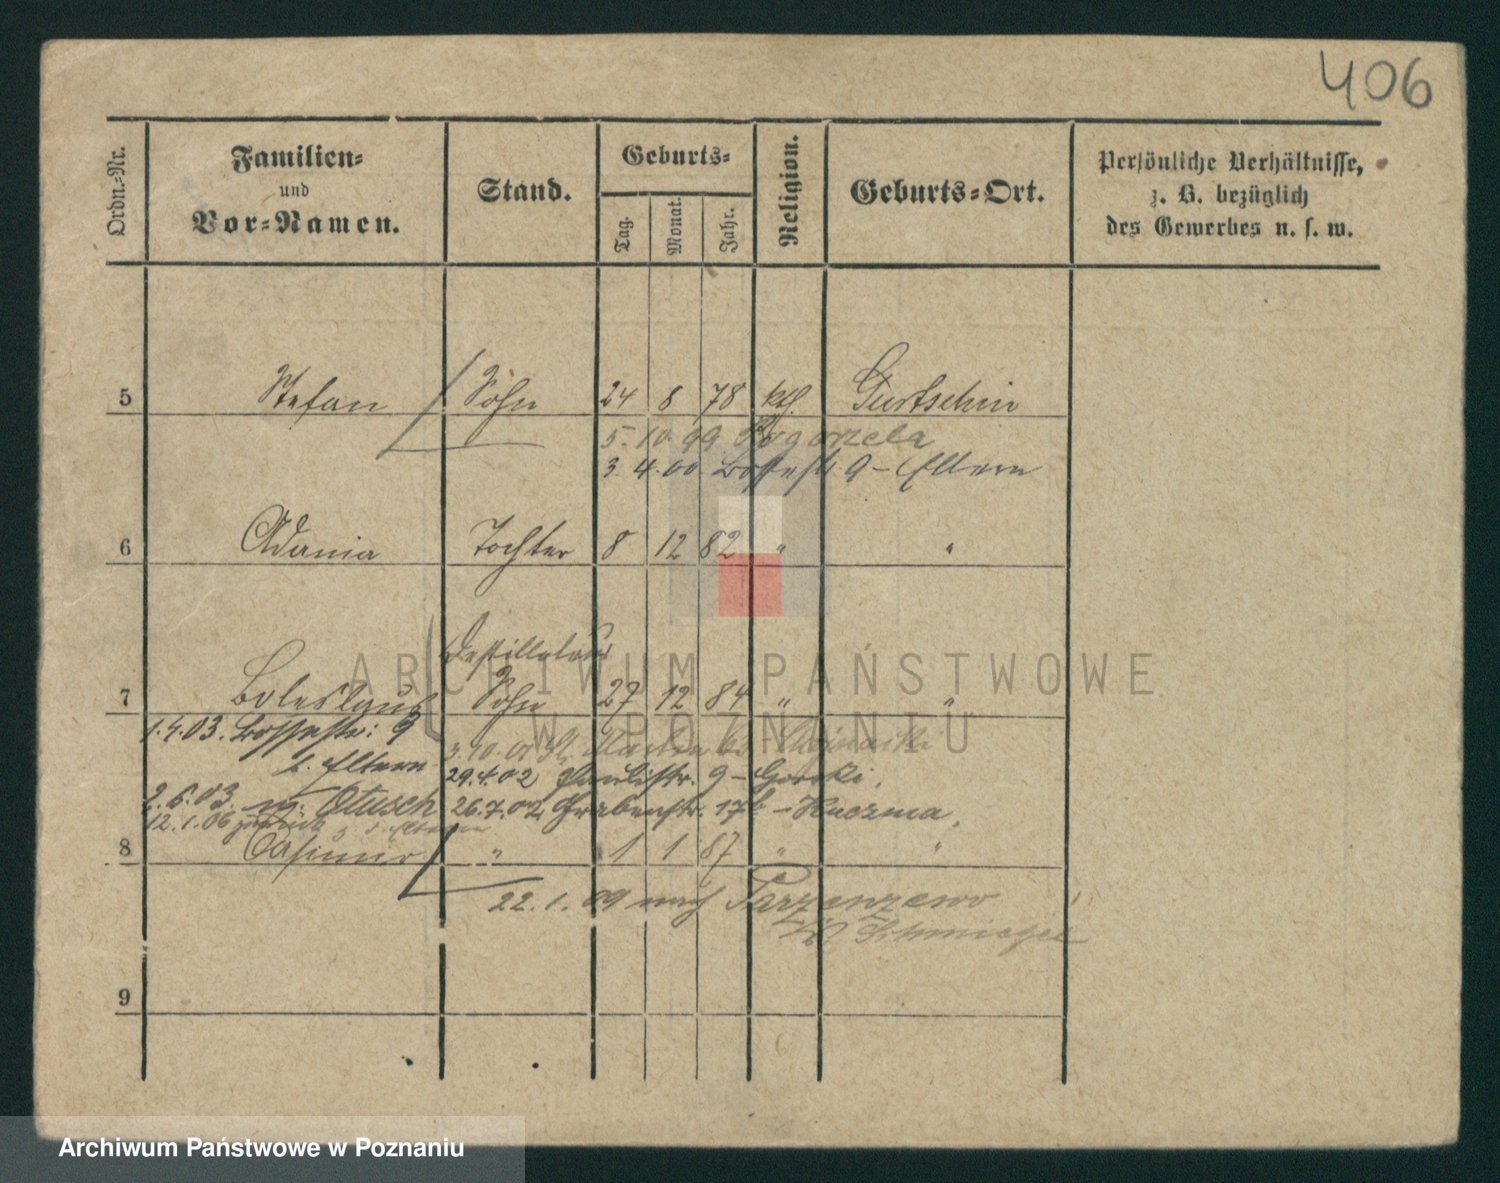 406
Ordn.-Nr.
Familien-
und
Vor-Namen.
Stand.
Geburts-
Tag.
Monat.
Jahr.
Religion.
Geburts-Ort.
Persönliche Verhältnisse,
z. B. bezüglich
des Gewerbes u. s. w.
5 Stefan Sohn 24 8 78 kth. Gurtschin
5. 10. 99 Pogorzela
3. 4. 00 9 - Eltern
6 Tochter 8 12 82 " "
Destillateur
7 Boleslaus Sohn 27 12 84 " "
1.4.03. : 9
z. Eltern
29.4.02 Paulistr. 9 - Gorski,
2.6.03. n. Otusch 26.7.02 Grabenstr. 17b - Kuczma,
12.1.06 zurück z. Eltern
8 Casimir " 1 1 87 " "
22. 1. 09 nach
Schmiegel
9
ARCHIWUM PAŃSTWOWE
W POZNANIU
Archiwum Państwowe w Poznaniu